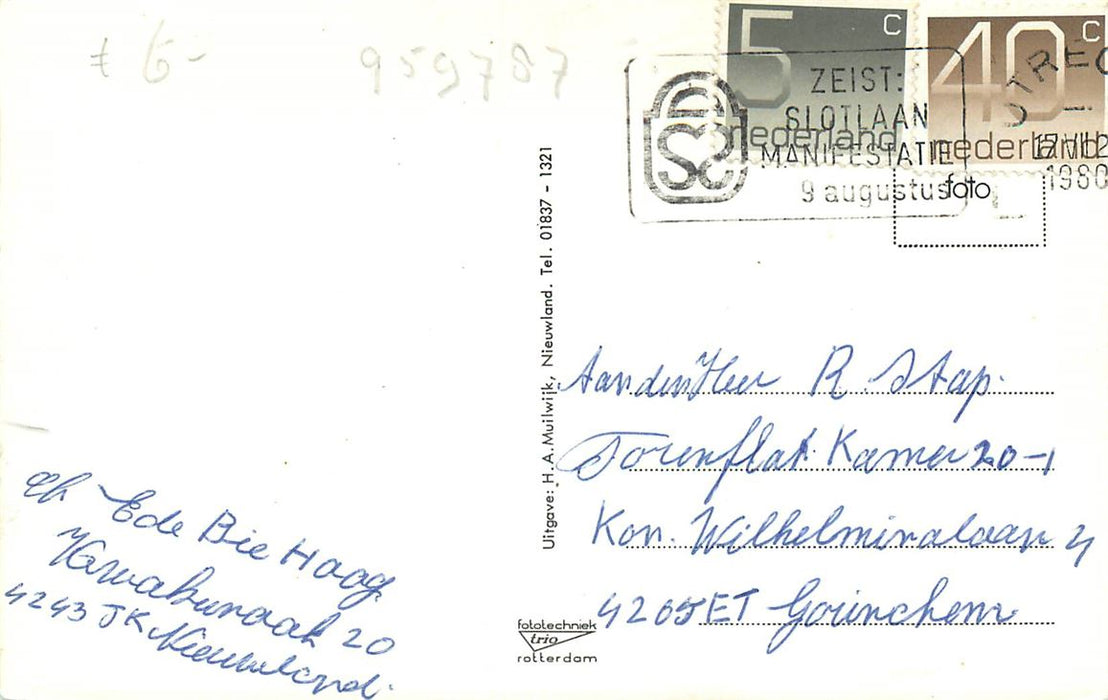 £ 6-
959787
5 c
nederland
40 c
nederland
ZEIST:
SLOTLAAN
MANIFESTATIE
9 augustus
UTREC
17 VII
1980
foto
Uitgave: H. A. Muilwijk, Nieuwland. Tel. 01837 - 1321
Aan den Heer R Stap.
Torenflat Kamer 20-1
Kon. Wilhelminalaan 4
4205ET Gorinchem
fototechniek
trio
rotterdam
Ede Bie Hoog
20
4243 JK Nieuwland.